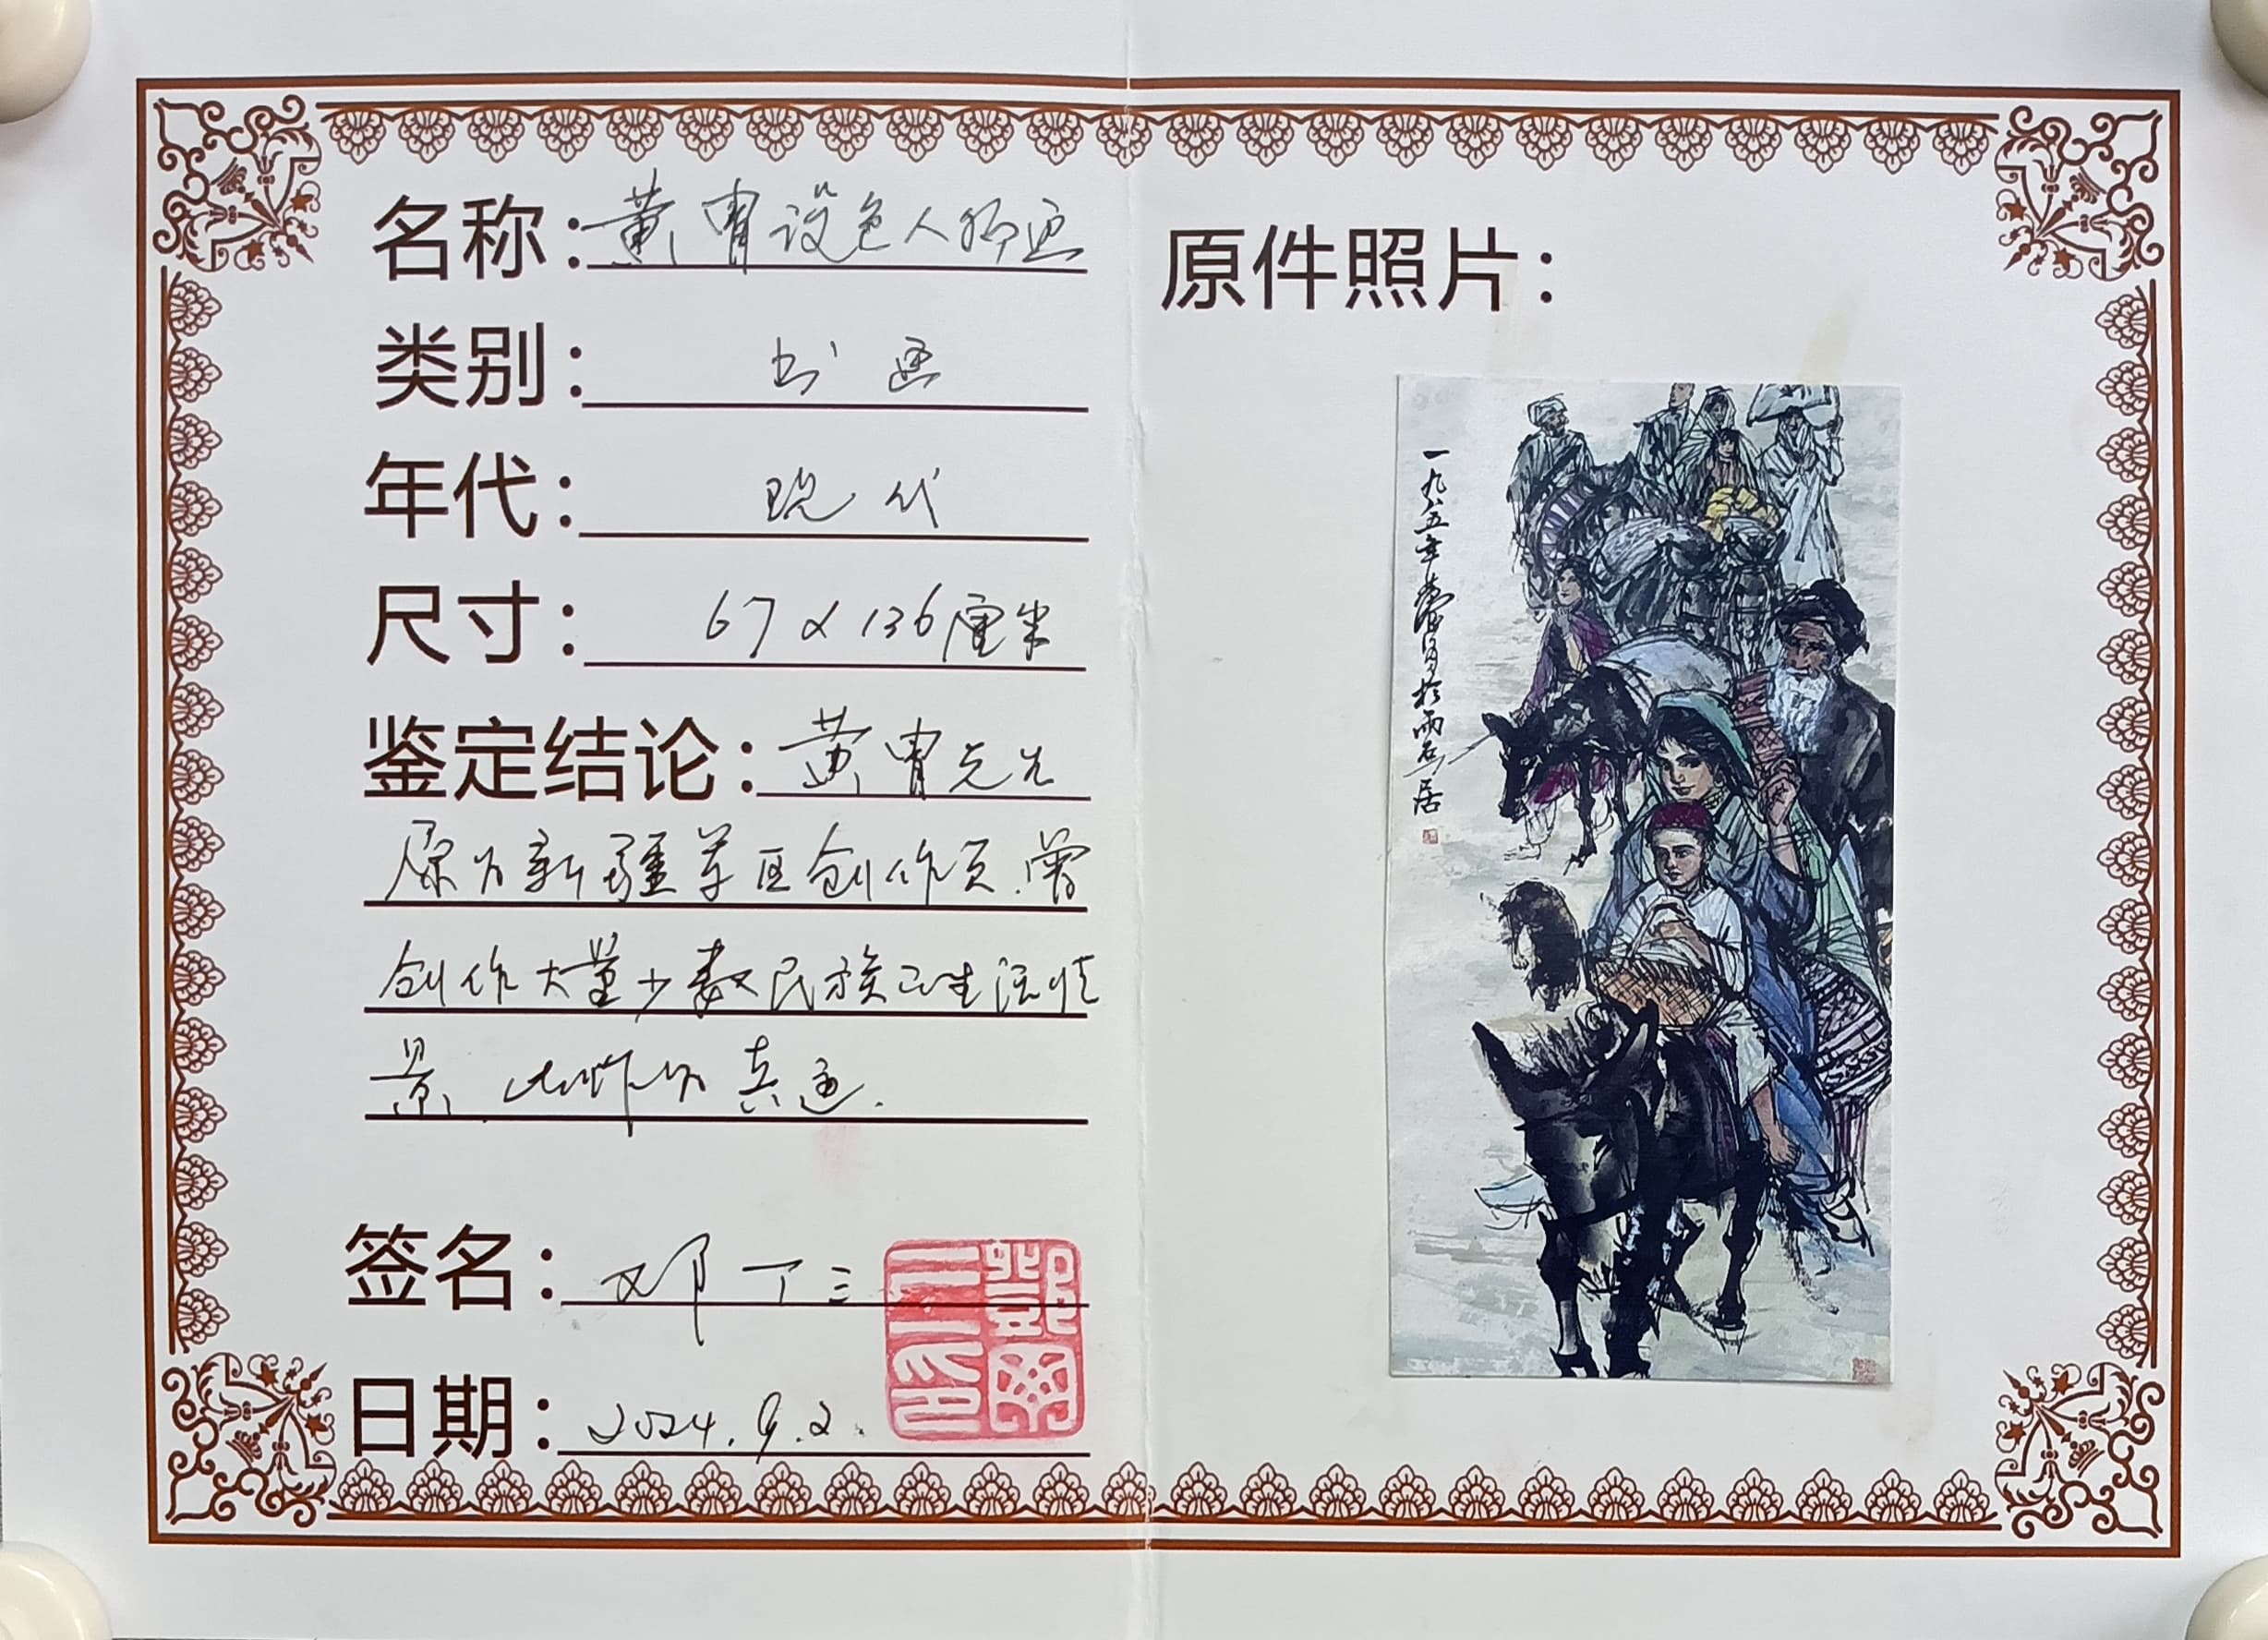 名称：黄胄设色人物画
类别：书画
年代：现代
尺寸：67×136厘米
鉴定结论：黄胄先生
原为新疆军区创作员.曾
创作大量少数民族的生活情
景.此作为真迹.
签名：邓丁三
日期：2024.9.2.
原件照片：
一九八五年黄胄写于雨石居